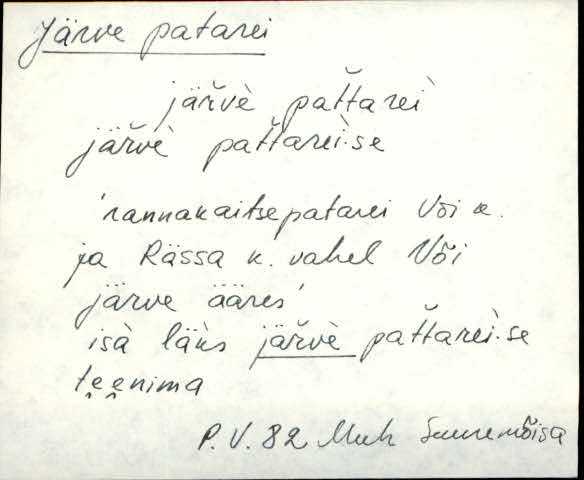 Järve patarei
järvè pattarei̇̀
järvè pattarei̇̀se
'rannakaitsepatarei Või k.
ja Rässa k. vahel Või
järve ääres'
isà läks järvè pattarei̇̀se
teenima
P. V. 82 Muh Suuremõisa